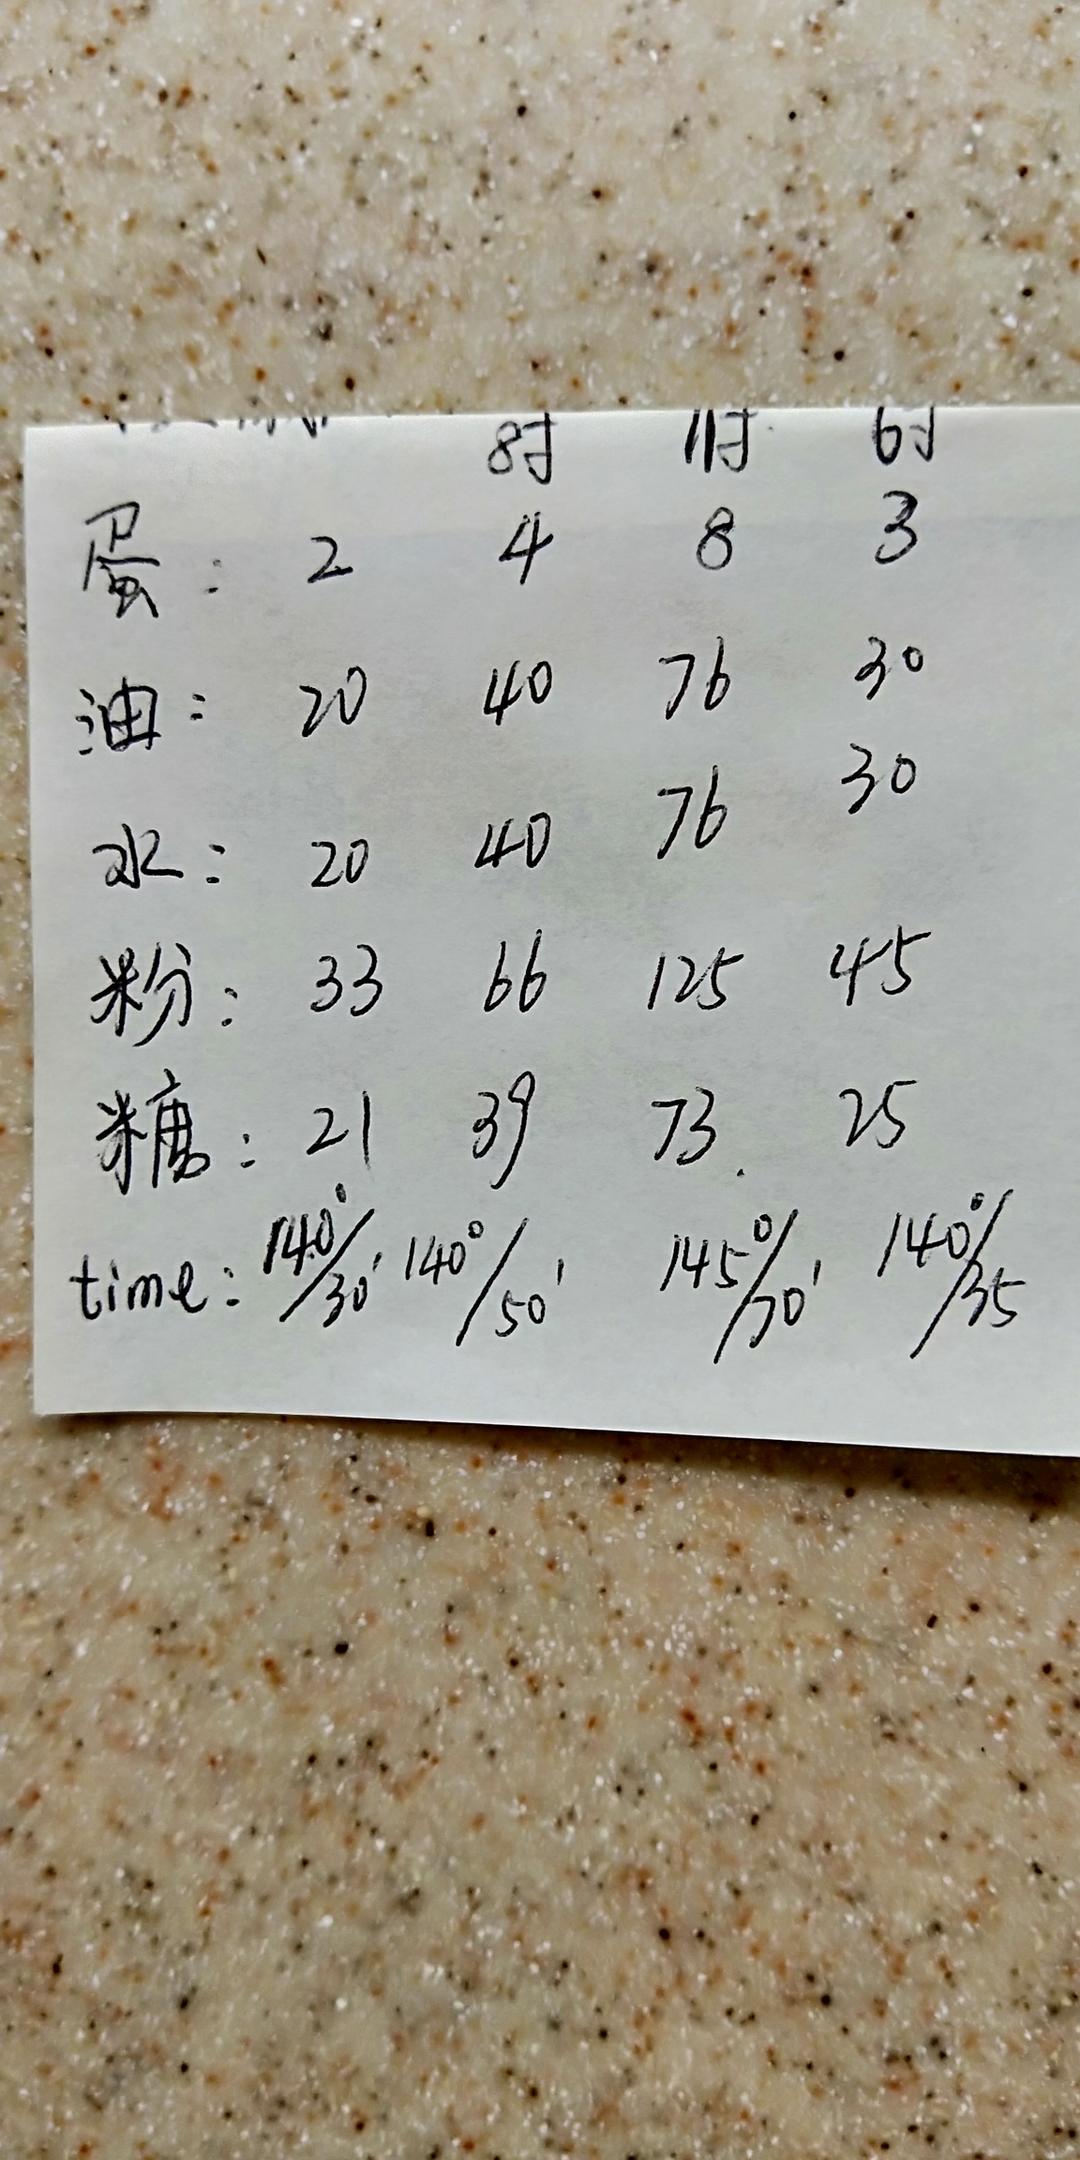 8寸 11寸 6寸
蛋: 2 4 8 3
油: 20 40 76 30
水: 20 40 76 30
粉: 33 66 125 45
糖: 21 39 73. 25
time: 140°/30' 140°/50' 145°/70' 140°/35